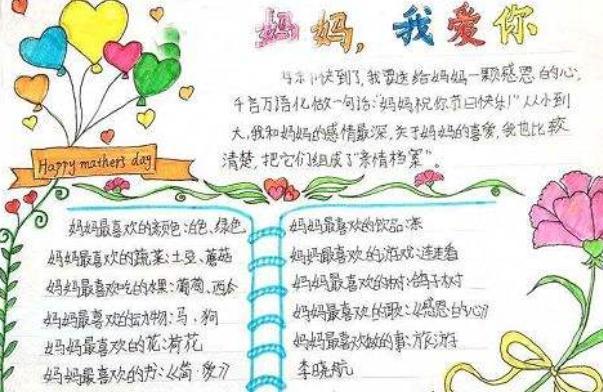 妈妈,我爱你
母亲节快到了,我要送给妈妈一颗感恩的心,
千言万语化做一句话:“妈妈祝你节日快乐!”从小到
大,我和妈妈的感情最深,关于妈妈的喜爱,我也比较
清楚,把它们组成了“亲情档案”。
Happy mathers day
妈妈最喜欢的颜色:白色、绿色
妈妈最喜欢的蔬菜:土豆、蘑菇
妈妈最喜欢吃的水果:葡萄、西瓜
妈妈最喜欢的动物:马、狗
妈妈最喜欢的花:荷花
妈妈最喜欢的书:《简·爱》
妈妈最喜欢的饮品:茶
妈妈最喜欢的游戏:连连看
妈妈最喜欢的树:鸽子树
妈妈最喜欢的歌:《感恩的心》
妈妈最喜欢做的事:旅游
李晓航